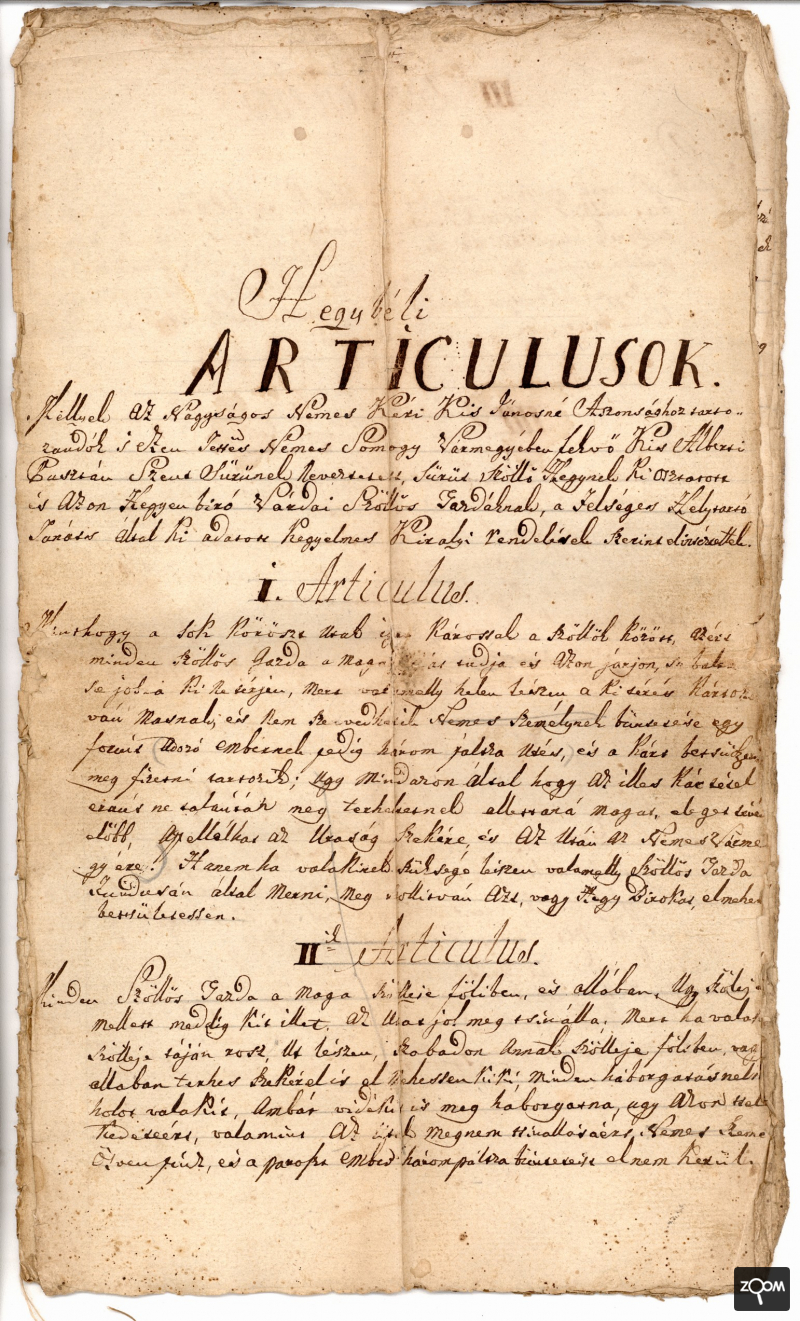 Hegybéli
ARTICULUSOK.
Mellyek az Nagyságos Nemes Kéri Kis Jánosné Aszonsághoz tarto-
zandók s Ezen Ttes Nemes Somogy Vármegyében fekvő Kis Alberti
Pusztán Szent Sürünek neveztetett, Sürüs Szőllő Hegynek ki osztatott
és Azon Hegyen biró Várdai Szőllős Gazdáknak, a Felséges Helytartó
Tanáts által ki adatott Kegyelmes Királyi rendelések szerint
I. Articulus.
Minthogy a sok Köröszt utak igen Károssak a szőllők között, azért
minden szőllős Gazda a maga tudja és Azon járjon, se bal
se jobra ki ne térjen, mert valamelly helen lészen a ki térés Károt
ván Masnak, és nem szenvedhetik Nemes személynek büntetése egy
forint Adozó embernek pedig három páltza ütés, és a Kárt
meg fizetni tartozik; Ugy mindazon által hogy az illes Kár tétel
eránt ne találták meg terheltetnek ellettaná magát, eleget tévén
előbb, Apellálhat az Uraság Székére, és Az Után az Nemes Várme
gyére! Hanem ha valakinek szüksége lészen valamelly Szőllős Gazda
Fundusán által Menni, meg szollitván Azt, vagy Hegy Birokat, el mehet
betsületessen.
IIik Articulus.
Minden Szőllős Gazda a maga Szőlleje föliben, és allában, Ugy Szőleje
mellett meddig kit illet, az Utat jol meg tsinálla, Mert ha valaki
Szőlleje táján rosz Ut lészen, Szabadon Annak Szőlleje föliben, vagy
allaban terhes Szekérel is el Mehessen kiki, minden háborgatás nélk
holot valakit, Ambár vidékit is meg háborgatna, ugy azon tsele
kedeteért, valamint Az útnak meg nem tsinállásáért, Nemes Szemé
Ötven pénz, és a paraszt Ember három páltza büntetést el nem kerül.